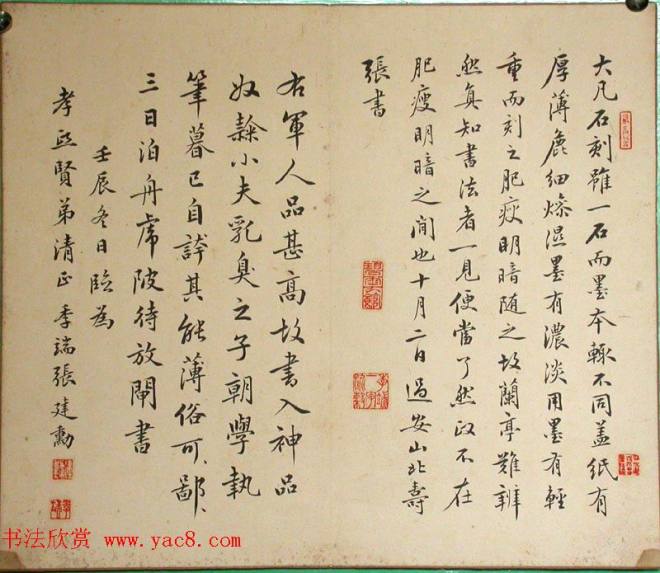 大凡石刻雖一石而墨本輒不同盖紙有
厚薄麁細燥濕墨有濃淡用墨有輕
重而刻之肥瘦明暗随之故蘭亭難辨
然真知書法者一見便當了然政不在
肥瘦明暗之間也十月二日過安山北壽
張書
右軍人品甚高故書入神品
奴隸小夫乳臭之子朝學執
筆暮已自誇其能薄俗可鄙鄙
三日泊舟虎陂待放閘書
壬辰冬日臨為
孝 賢弟清正 季端張建勳
书法欣赏 www.yac8.com